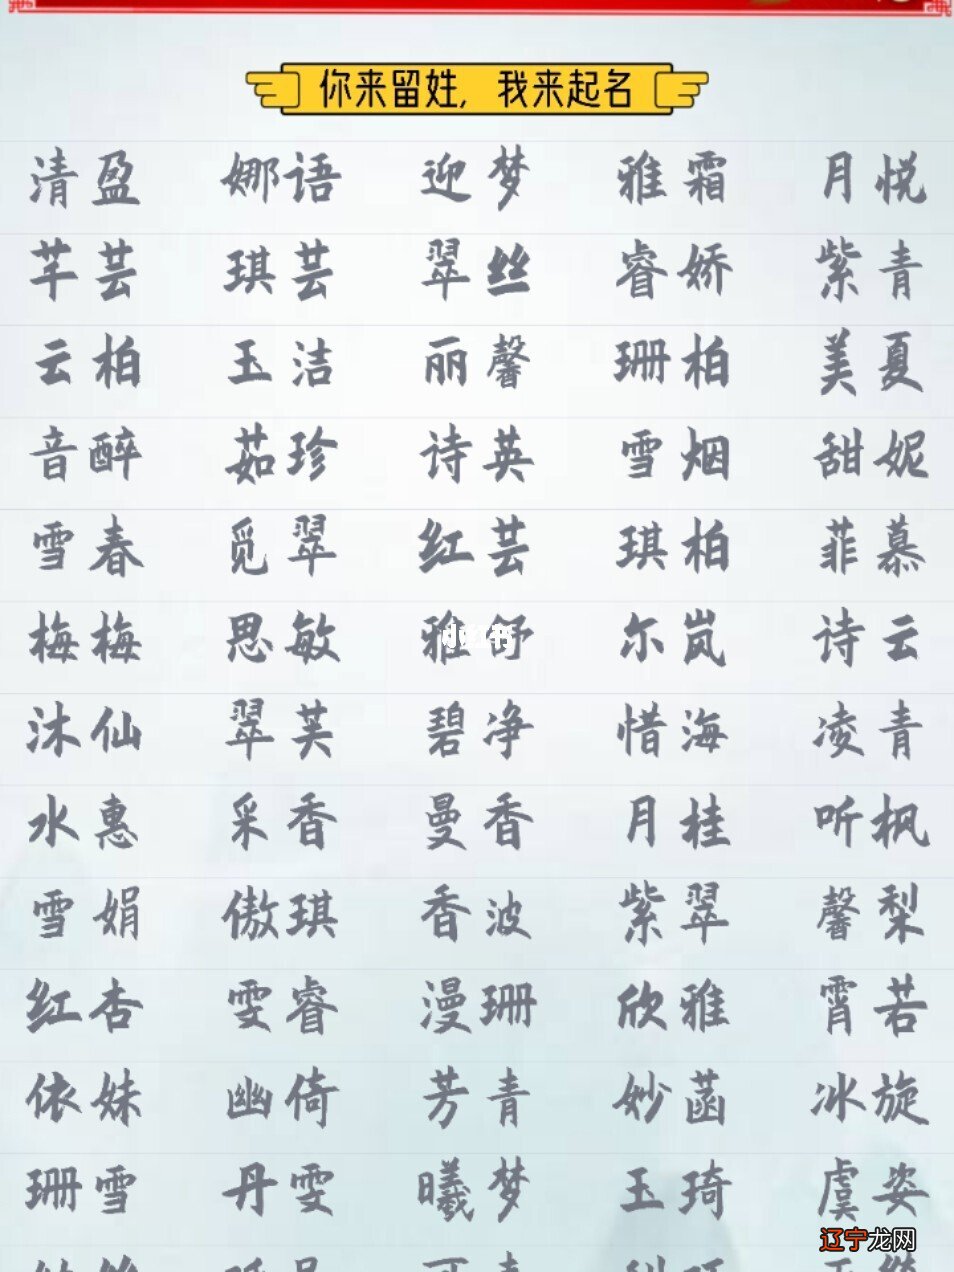 你来留姓, 我来起名
清盈 娜语 迎梦 雅霜 月悦
芊芸 琪芸 翠丝 睿娇 紫青
云柏 玉洁 丽馨 珊柏 美夏
音醉 茹珍 诗英 雪烟 甜妮
雪春 觅翠 红芸 琪柏 菲慕
梅梅 思敏 雅舒 尔岚 诗云
小红书
沐仙 翠芙 碧净 惜海 凌青
水惠 采香 曼香 月桂 听枫
雪娟 傲琪 香波 紫翠 馨梨
红杏 雯睿 漫珊 欣雅 霄若
依妹 幽倚 芳青 妙菡 冰旋
珊雪 丹雯 曦梦 玉琦 虞姿
辽宁龙网